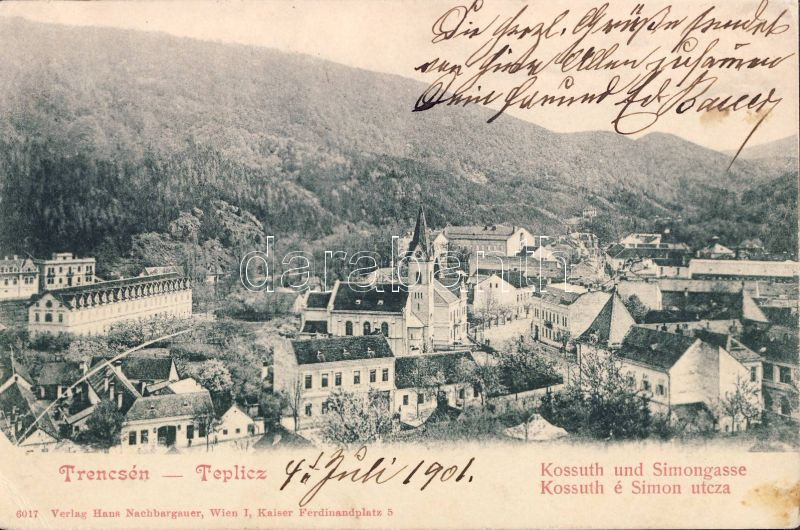 Die herzl. Grüße sendet
von hier Allen zusammen
Dein Freund Ed. Bauer
darabanth
Trencsén — Teplicz
4/ Juli 1901.
Kossuth und Simongasse
Kossuth é Simon utcza
6017 Verlag Hans Nachbargauer, Wien I, Kaiser Ferdinandplatz 5